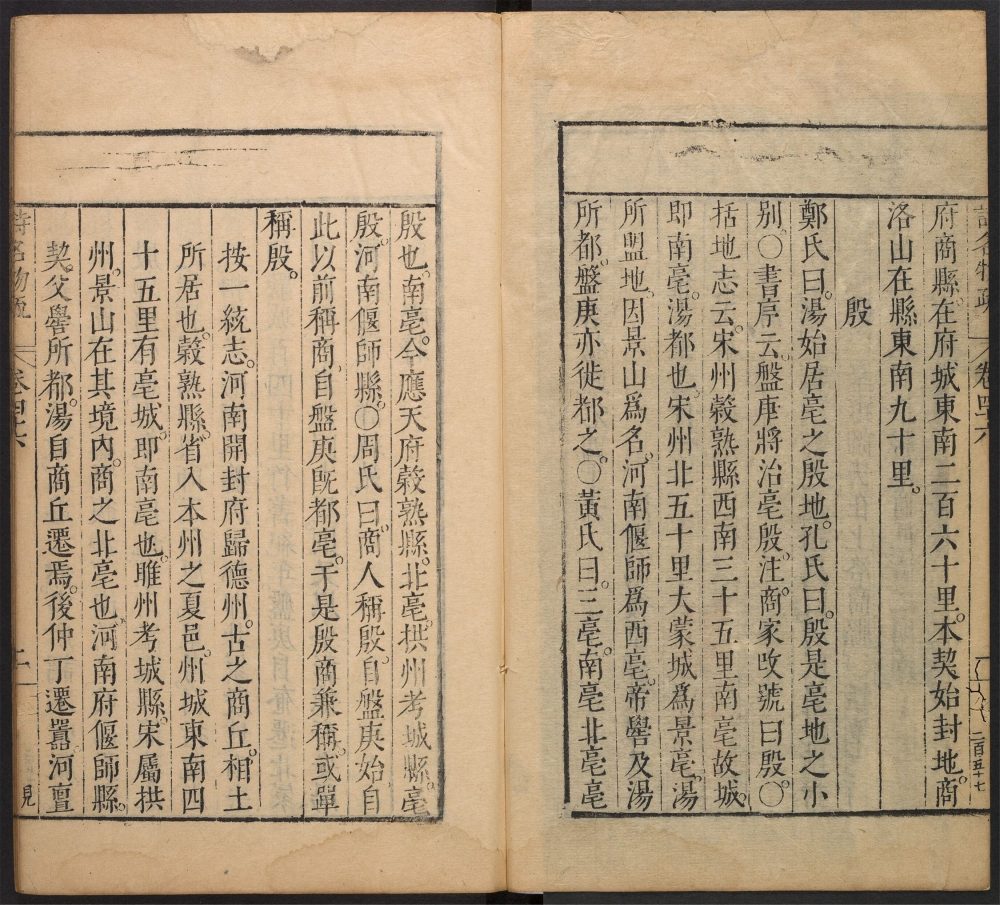 詩名物疏 卷四六 二百五十七
府商縣。在府城東南二百六十里。本契始封地。商
洛山在縣東南九十里。
殷
鄭氏曰。湯始居亳之殷地。孔氏曰。殷是亳地之小
別。〇書序云。盤庚將治亳殷。注。商家改號曰殷。〇
括地志云。宋州榖熟縣西南三十五里南亳故城。
即南亳。湯都也。宋州北五十里大蒙城爲景亳。湯
所盟地。因景山爲名。河南偃師爲西亳。帝嚳及湯
所都。盤庚亦徙都之。〇黃氏曰。三亳。南亳北亳亳
殷也。南亳。今應天府榖熟縣。北亳。拱州考城縣。亳
殷。河南偃師縣。〇周氏曰。商人稱殷。自盤庚始。自
此以前稱商。自盤庚旣都亳。于是殷商兼稱。或單
稱殷。
按一統志。河南開封府歸德州。古之商丘。相土
所居也。榖熟縣。省入本州之夏邑。州城東南四
十五里有亳城。即南亳也。睢州考城縣。宋屬拱
州。景山在其境內。商之北亳也。河南府偃師縣。
契父嚳所都。湯自商丘遷焉。後仲丁遷囂。河亶
詩名物疏 卷四六